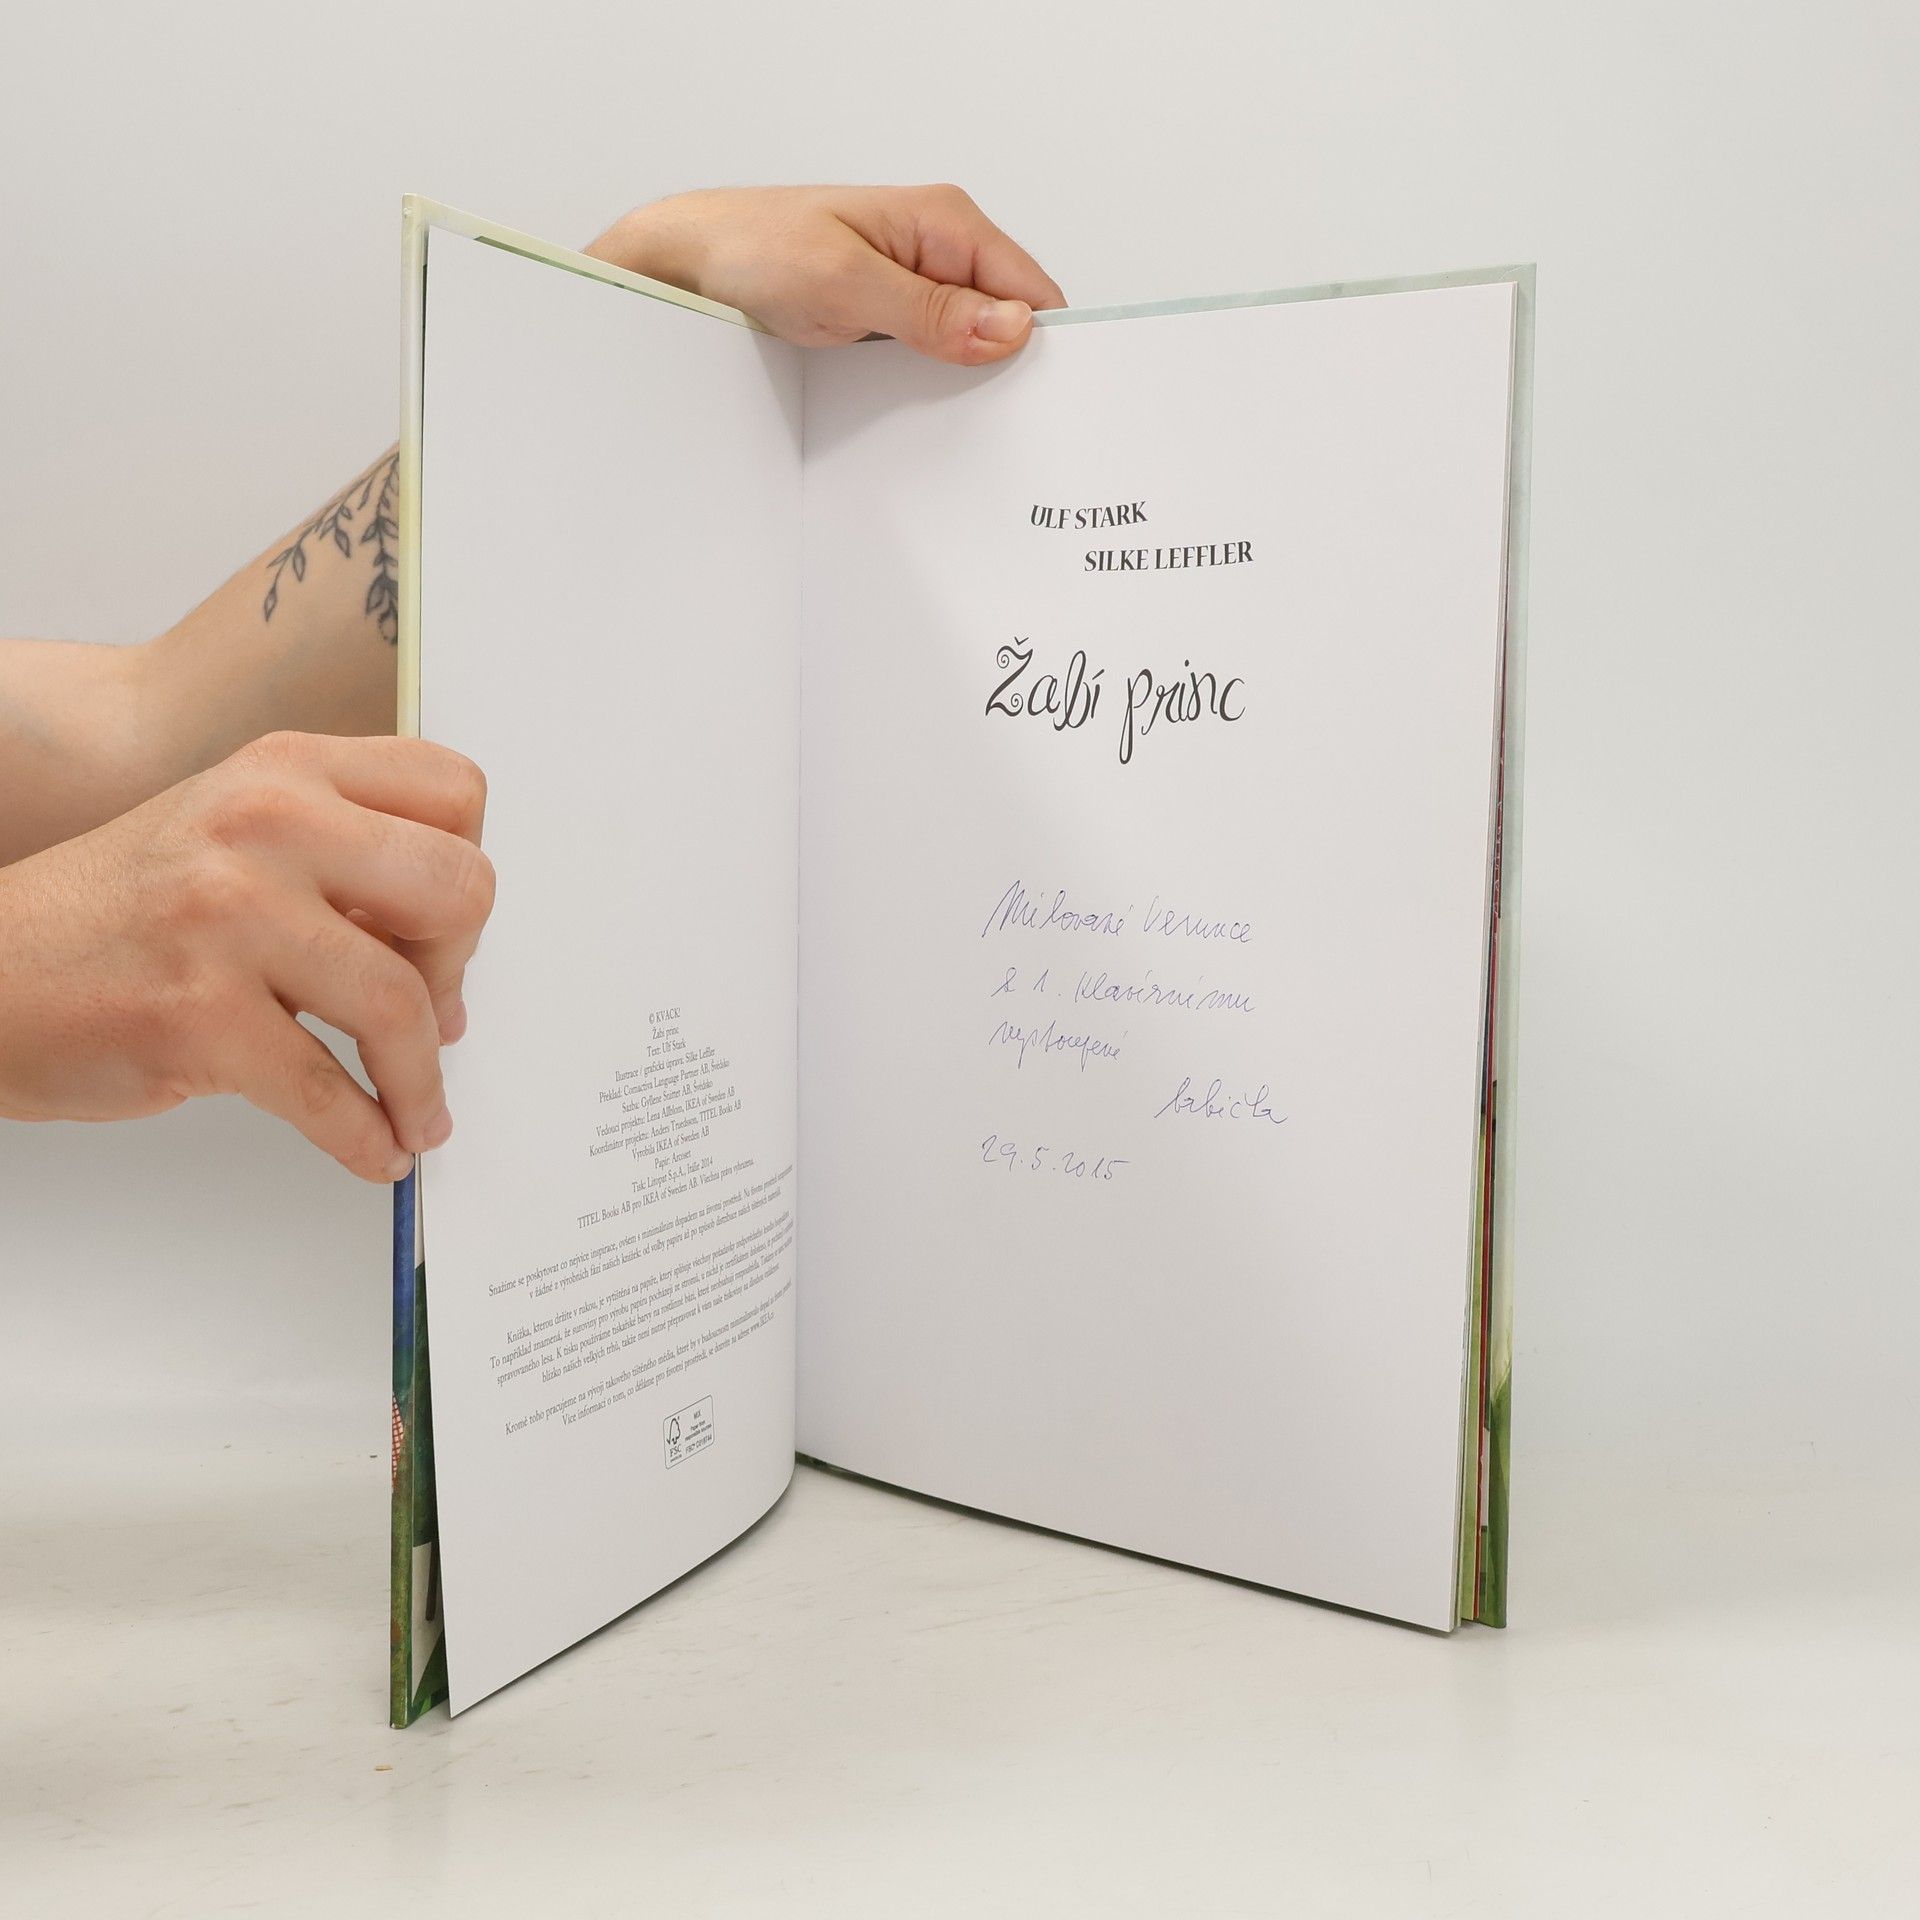 © KVACK!
Žabí princ
Text: Ulf Stark
Ilustrace / grafická úprava: Silke Leffler
Překlad: Comactiva Language Partner AB, Švédsko
Sazba: Gyllene Snittet AB, Švédsko
Vedoucí projektu: Lena Allblom, IKEA of Sweden AB
Koordinátor projektu: Anders Truedsson, TITEL Books AB
Vyrobila IKEA of Sweden AB
Papír: Arcoset
Tisk: Litopat S.p.A., Itálie 2014
TITEL Books AB pro IKEA of Sweden AB. Všechna práva vyhrazena.
Snažíme se poskytovat co nejvíce inspirace, ovšem s minimálním dopadem na životní prostředí. Na životní prostředí
v žádné z výrobních fází našich knížek: od volby papíru až po způsob distribuce našich tištěných materiálů.
Knížka, kterou držíte v rukou, je vytištěná na papíře, který splňuje všechny požadavky odpovědného lesního hospodářství.
To například znamená, že suroviny pro výrobu papíru pocházejí ze stromů, u nichž je certifikátem doloženo, že pocházejí z
spravovaného lesa. K tisku používáme tiskařské barvy na rostlinné bázi, které neobsahují rozpouštědla. Tiskneme
blízko našich velkých trhů, takže není nutné přepravovat k vám naše tiskoviny na dlouhou vzdálenost.
Kromě toho pracujeme na vývoji takového tištěného média, které by v budoucnosti minimalizovalo dopad na životní prostředí.
Více informací o tom, co děláme pro životní prostředí, se dozvíte na adrese www.IKEA.cz
FSC
MIX
Paper from
responsible sources
ULF STARK
SILKE LEFFLER
Žabí princ
Milované Verunce
k 1. klavírnímu
vystoupení
babička
29.5.2015